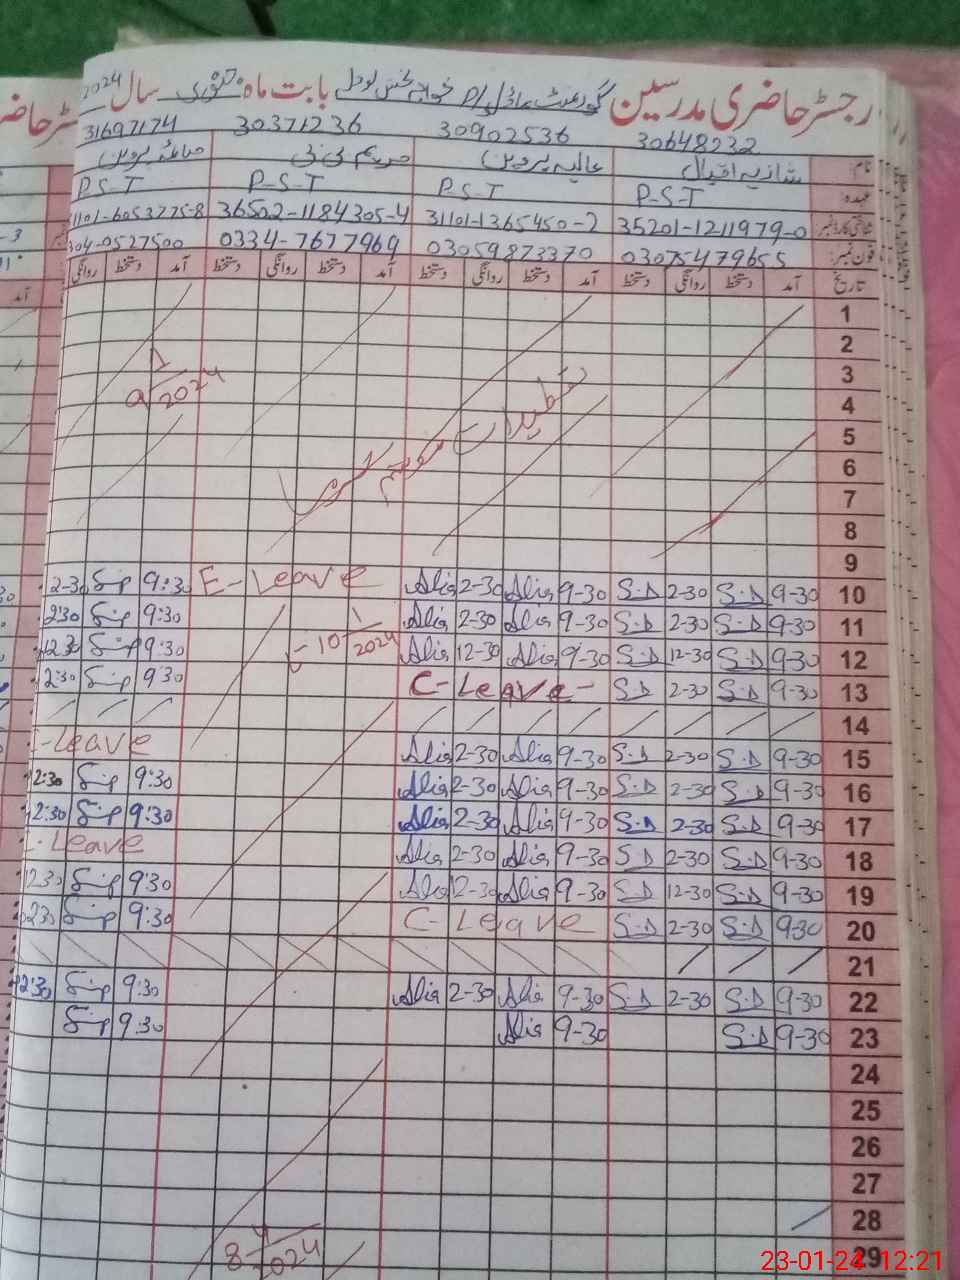 رجسٹر حاضری مدرسین گورنمنٹ ماڈل P/S خواجہ بخش لودھراں بابت ماہ جنوری سال 2024
30648232 30902536 30371236 31697174
نام: شازیہ اقبال عالیہ پروین مریم بی بی صائمہ پروین
عہدہ: P-S-T P-S-T P-S-T P-S-T
شناختی کارڈ نمبر 35201-1211979-0 31101-1365450-2 36502-1184305-4 1101-6053775-8
فون نمبر: 03075479655 03059873370 0334-7677969 304-0527500
تاریخ آمد دستخط روانگی دستخط آمد دستخط روانگی دستخط آمد دستخط روانگی دستخط آمد دستخط روانگی
1
2
3
4
5
6
7
8
9
تعطیلات موسم سرما
9 1/2024
10 9-30 S.D 2-30 S.D 9-30 Alia 2-30 Alia E-Leave 9:30 2-30
11 9-30 S.D 2-30 S.D 9-30 Alia 2-30 Alia 10 1/2024 9:30 2:30
12 9-30 S.D 12-30 S.D 9-30 Alia 12-30 Alia 9:30 12:30
13 9-30 S.D 2-30 S.D C-Leave 9:30 2:30
14
15 9-30 S.D 2-30 S.D 9-30 Alia 2-30 Alia C-Leave
16 9-30 S.D 2-30 S.D 9-30 Alia 2-30 Alia 9:30 2:30
17 9-30 S.D 2-30 S.D 9-30 Alia 2-30 Alia 9:30 2:30
18 9-30 S.D 2-30 S.D 9-30 Alia 2-30 Alia Leave
19 9-30 S.D 12-30 S.D 9-30 Alia 12-30 Alia 9:30 12:30
20 9-30 S.D 2-30 S.D C-Leave 9:30 2:30
21
22 9-30 S.D 2-30 S.D 9-30 Alia 2-30 Alia 9:30 2:30
23 9-30 S.D 9-30 Alia 9:30
24
25
26
27
28
8 4/2024
29
23-01-24 12:21